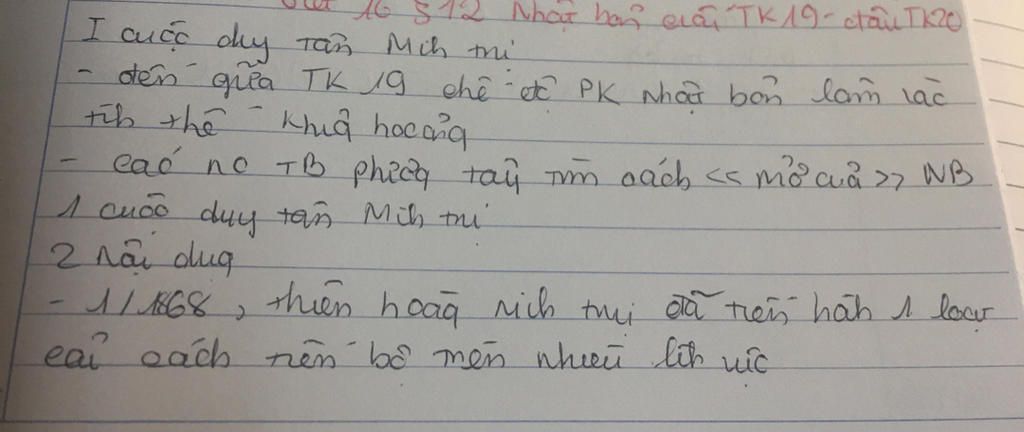 16 §12 Nhật bản cuối TK19-đầu TK20
I cuộc duy tân Mih trị
- đến giữa TK 19 chế độ PK Nhật bản lâm vào
tìh thế khủg hoảng
- các nc TB phươg tây tìm cách << mở cửa >> NB
1 cuộc duy tân Mih trị
2 Nội dug
- 1/1868, thiên hoàg Mih trị đã tiến hàh 1 loạt
cải cách tiến bộ trên nhiều lĩh vực